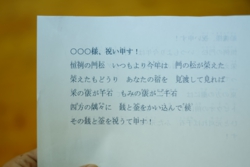 ○○○様、祝い申す！
恒例の門松 いつもより今年は 門の松が栄えた
栄えたもどうり あなたの宿を 見渡して見れば
米の俵が千石 もみの俵が二千石
四方の隅々に 銭と金をかい込んで
その銭と金を祝うて申す！